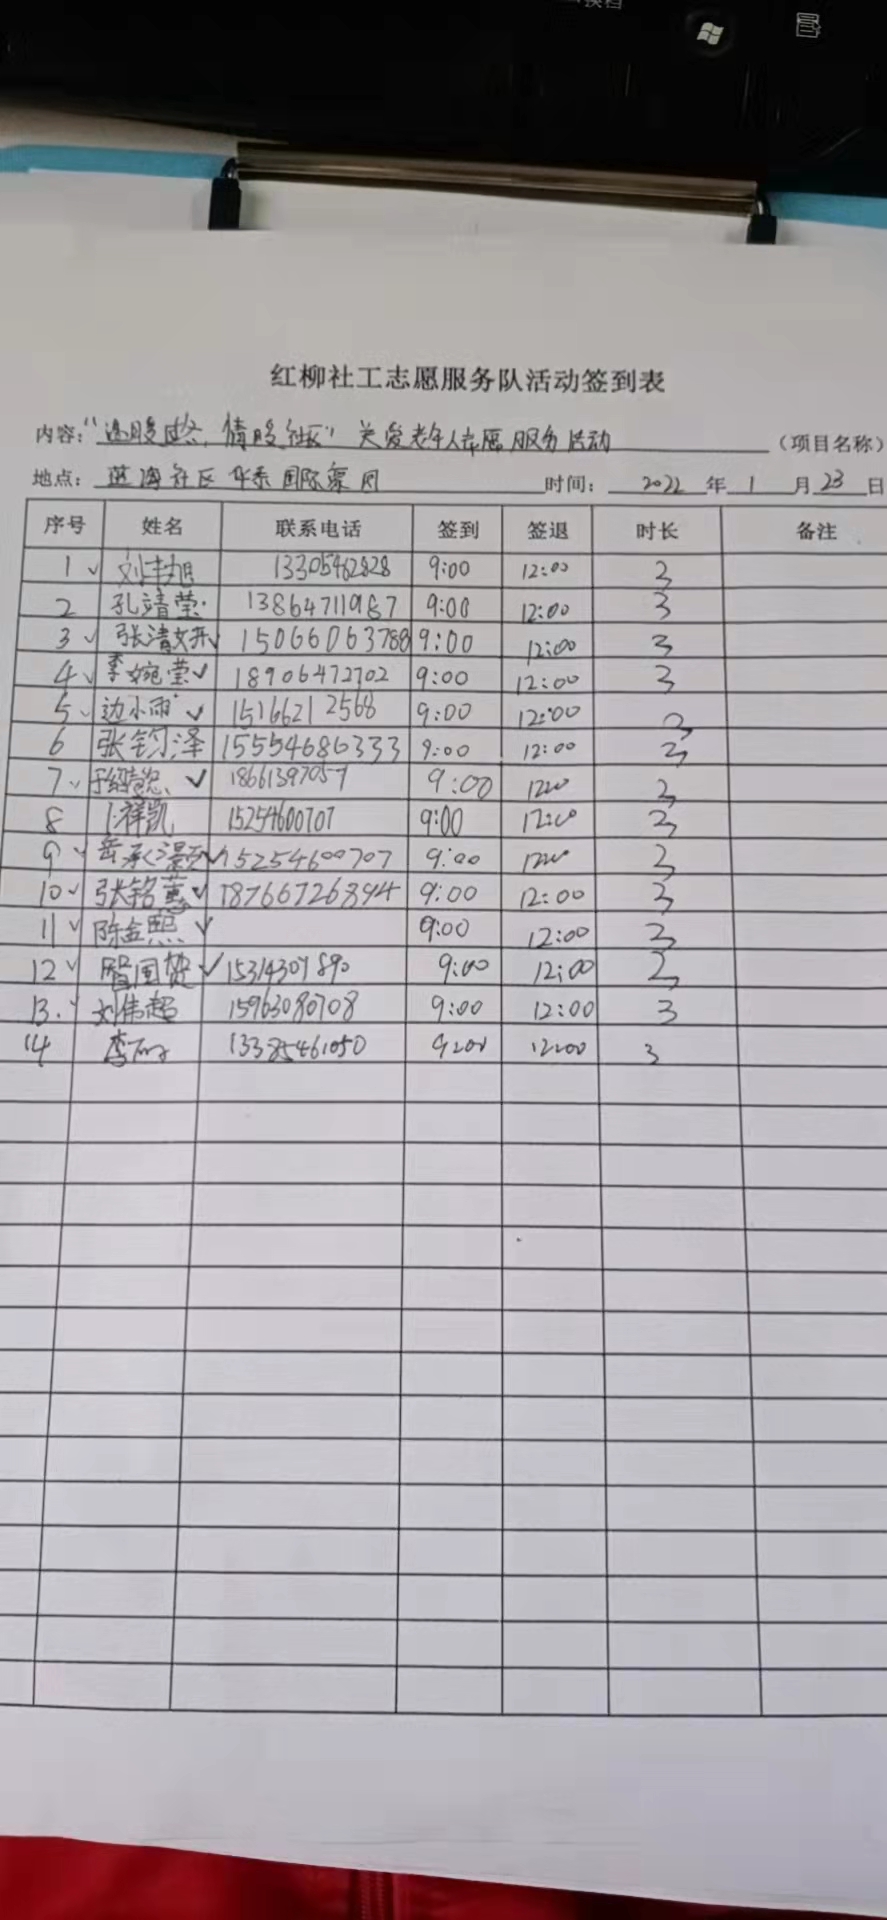 换档
红柳社工志愿服务队活动签到表
内容："送暖, 情暖社区" 关爱老年人志愿服务活动 (项目名称)
地点：蓝海社区 华泰国际家园 时间：2022 年 1 月 23 日
序号 姓名 联系电话 签到 签退 时长 备注
1 ✓ 刘丰旭 13305462828 9:00 12:00 3
2 孔靖莹 13864711987 9:00 12:00 3
3 ✓ 张清妍 ✓ 15066063788 9:00 12:00 3
4 ✓ 李婉莹 ✓ 18906472702 9:00 12:00 3
5 ✓ 边小雨 ✓ 15166212568 9:00 12:00 3
6 张钧泽 15554686333 9:00 12:00 3
7 ✓ ✓ 18661397057 9:00 1200 3
8 祥凯 15254600707 9:00 12:00 3
9 ✓ 岳承灏 ✓ 15254600707 9:00 1200 3
10 ✓ 张铭蕙 ✓ 18766726894 9:00 12:00 3
11 ✓ 陈金熙 ✓ 9:00 12:00 3
12 ✓ 国赞 ✓ 15314307890 9:00 12:00 3
13. ✓ 刘伟超 15963080708 9:00 12:00 3
14 李 13385461050 9:00 12:00 3